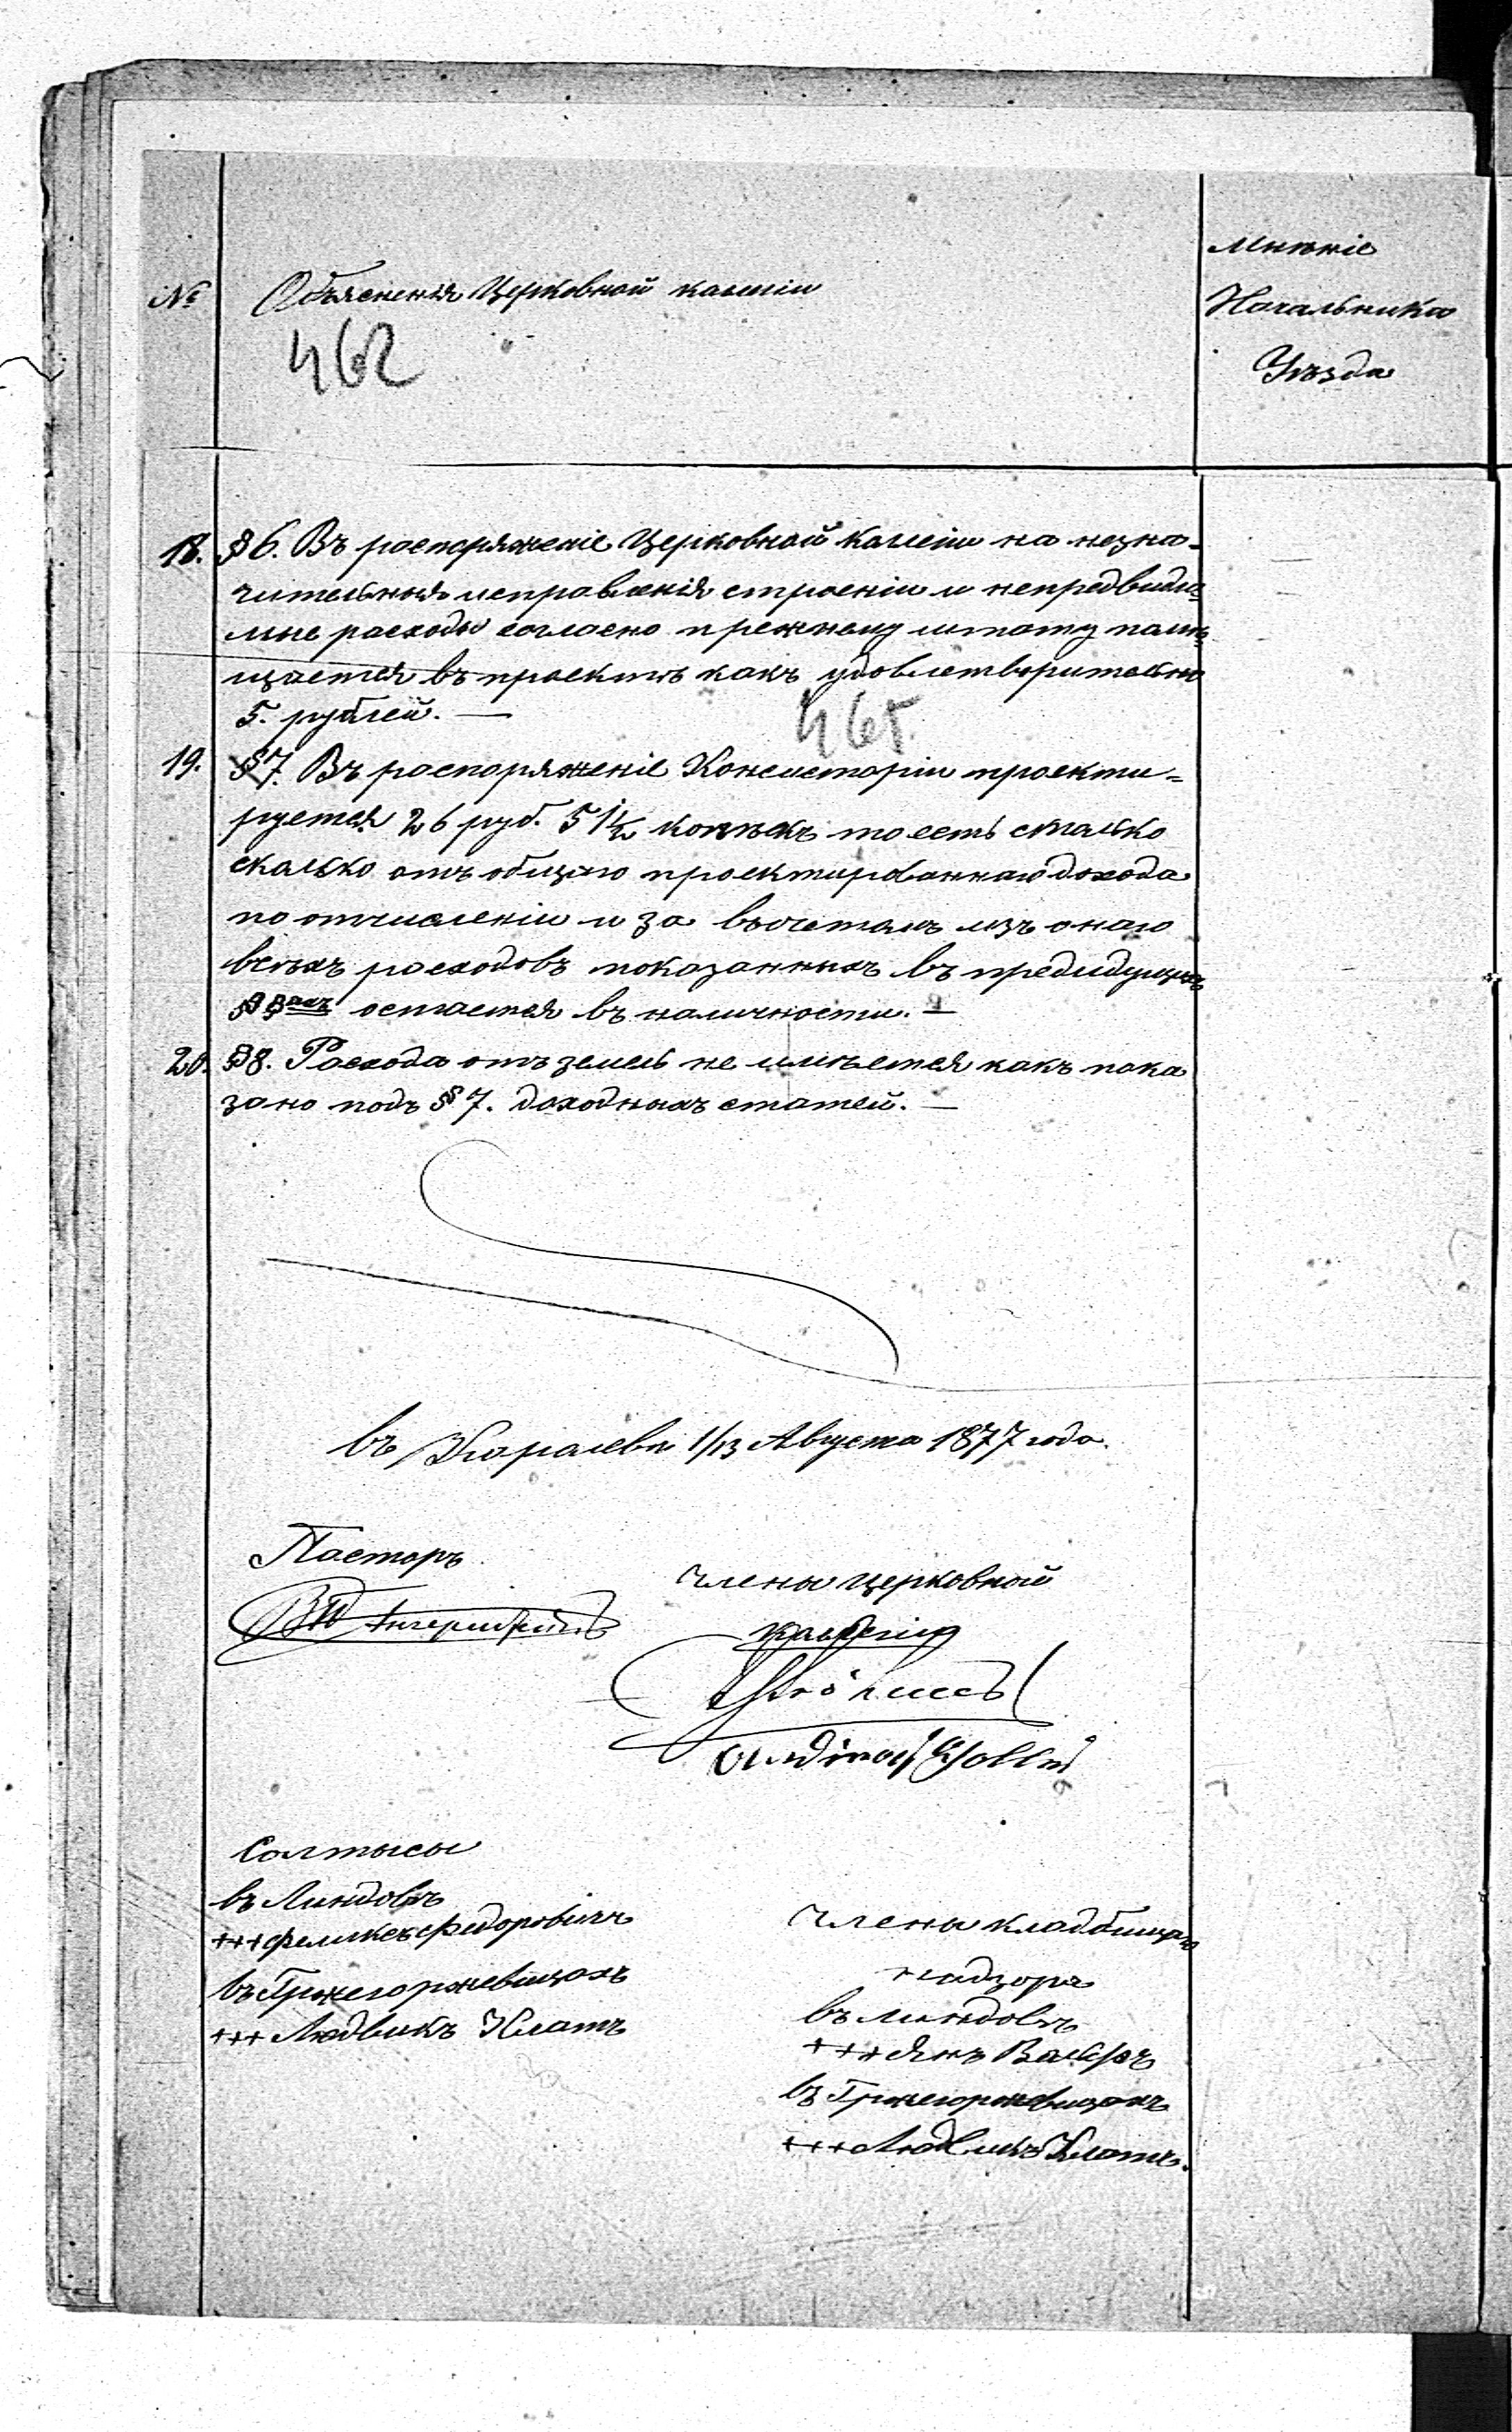 №
Объясненія Церковной калегіи
462
Мнѣніе
Начальника
Уѣзда
18. §6. Въ распоряженіе Церковной Калегіи на незна-
чительныя исправленія строеніи и непредвиди-
мые расходы согласно прежнему штату памѣ-
щается въ проектѣ какъ удовлетворительно
5. рублей. —
465
19. §7. Въ распоряженіе Консисторіи проекти-
руется 26 руб. 51½ копѣекъ то есть столько
сколько отъ общаго проектированнаго дохода
по отчисленіи и за вычетамъ изъ онаго
всѣхъ расходовъ показанныхъ въ предидущихъ
§§ахъ остается въ наличности. —
20. §8. Расхода отъ земель не имѣется какъ пока
зано подъ §7. доходныхъ статей. —
въ 1/13 Августа 1877 года.
Пасторъ
Члены церковной
калегіи
Солтысы
въ Линдовѣ
+++ Феликсъ Федоровичъ
въ Гржегоржевицахъ
+++ Людвикъ Клатъ
Члены кладбищаго
надзора
въ Линдовѣ
+++ Янъ
въ Гржегоржевицахъ
+++ Людвикъ Клатъ.